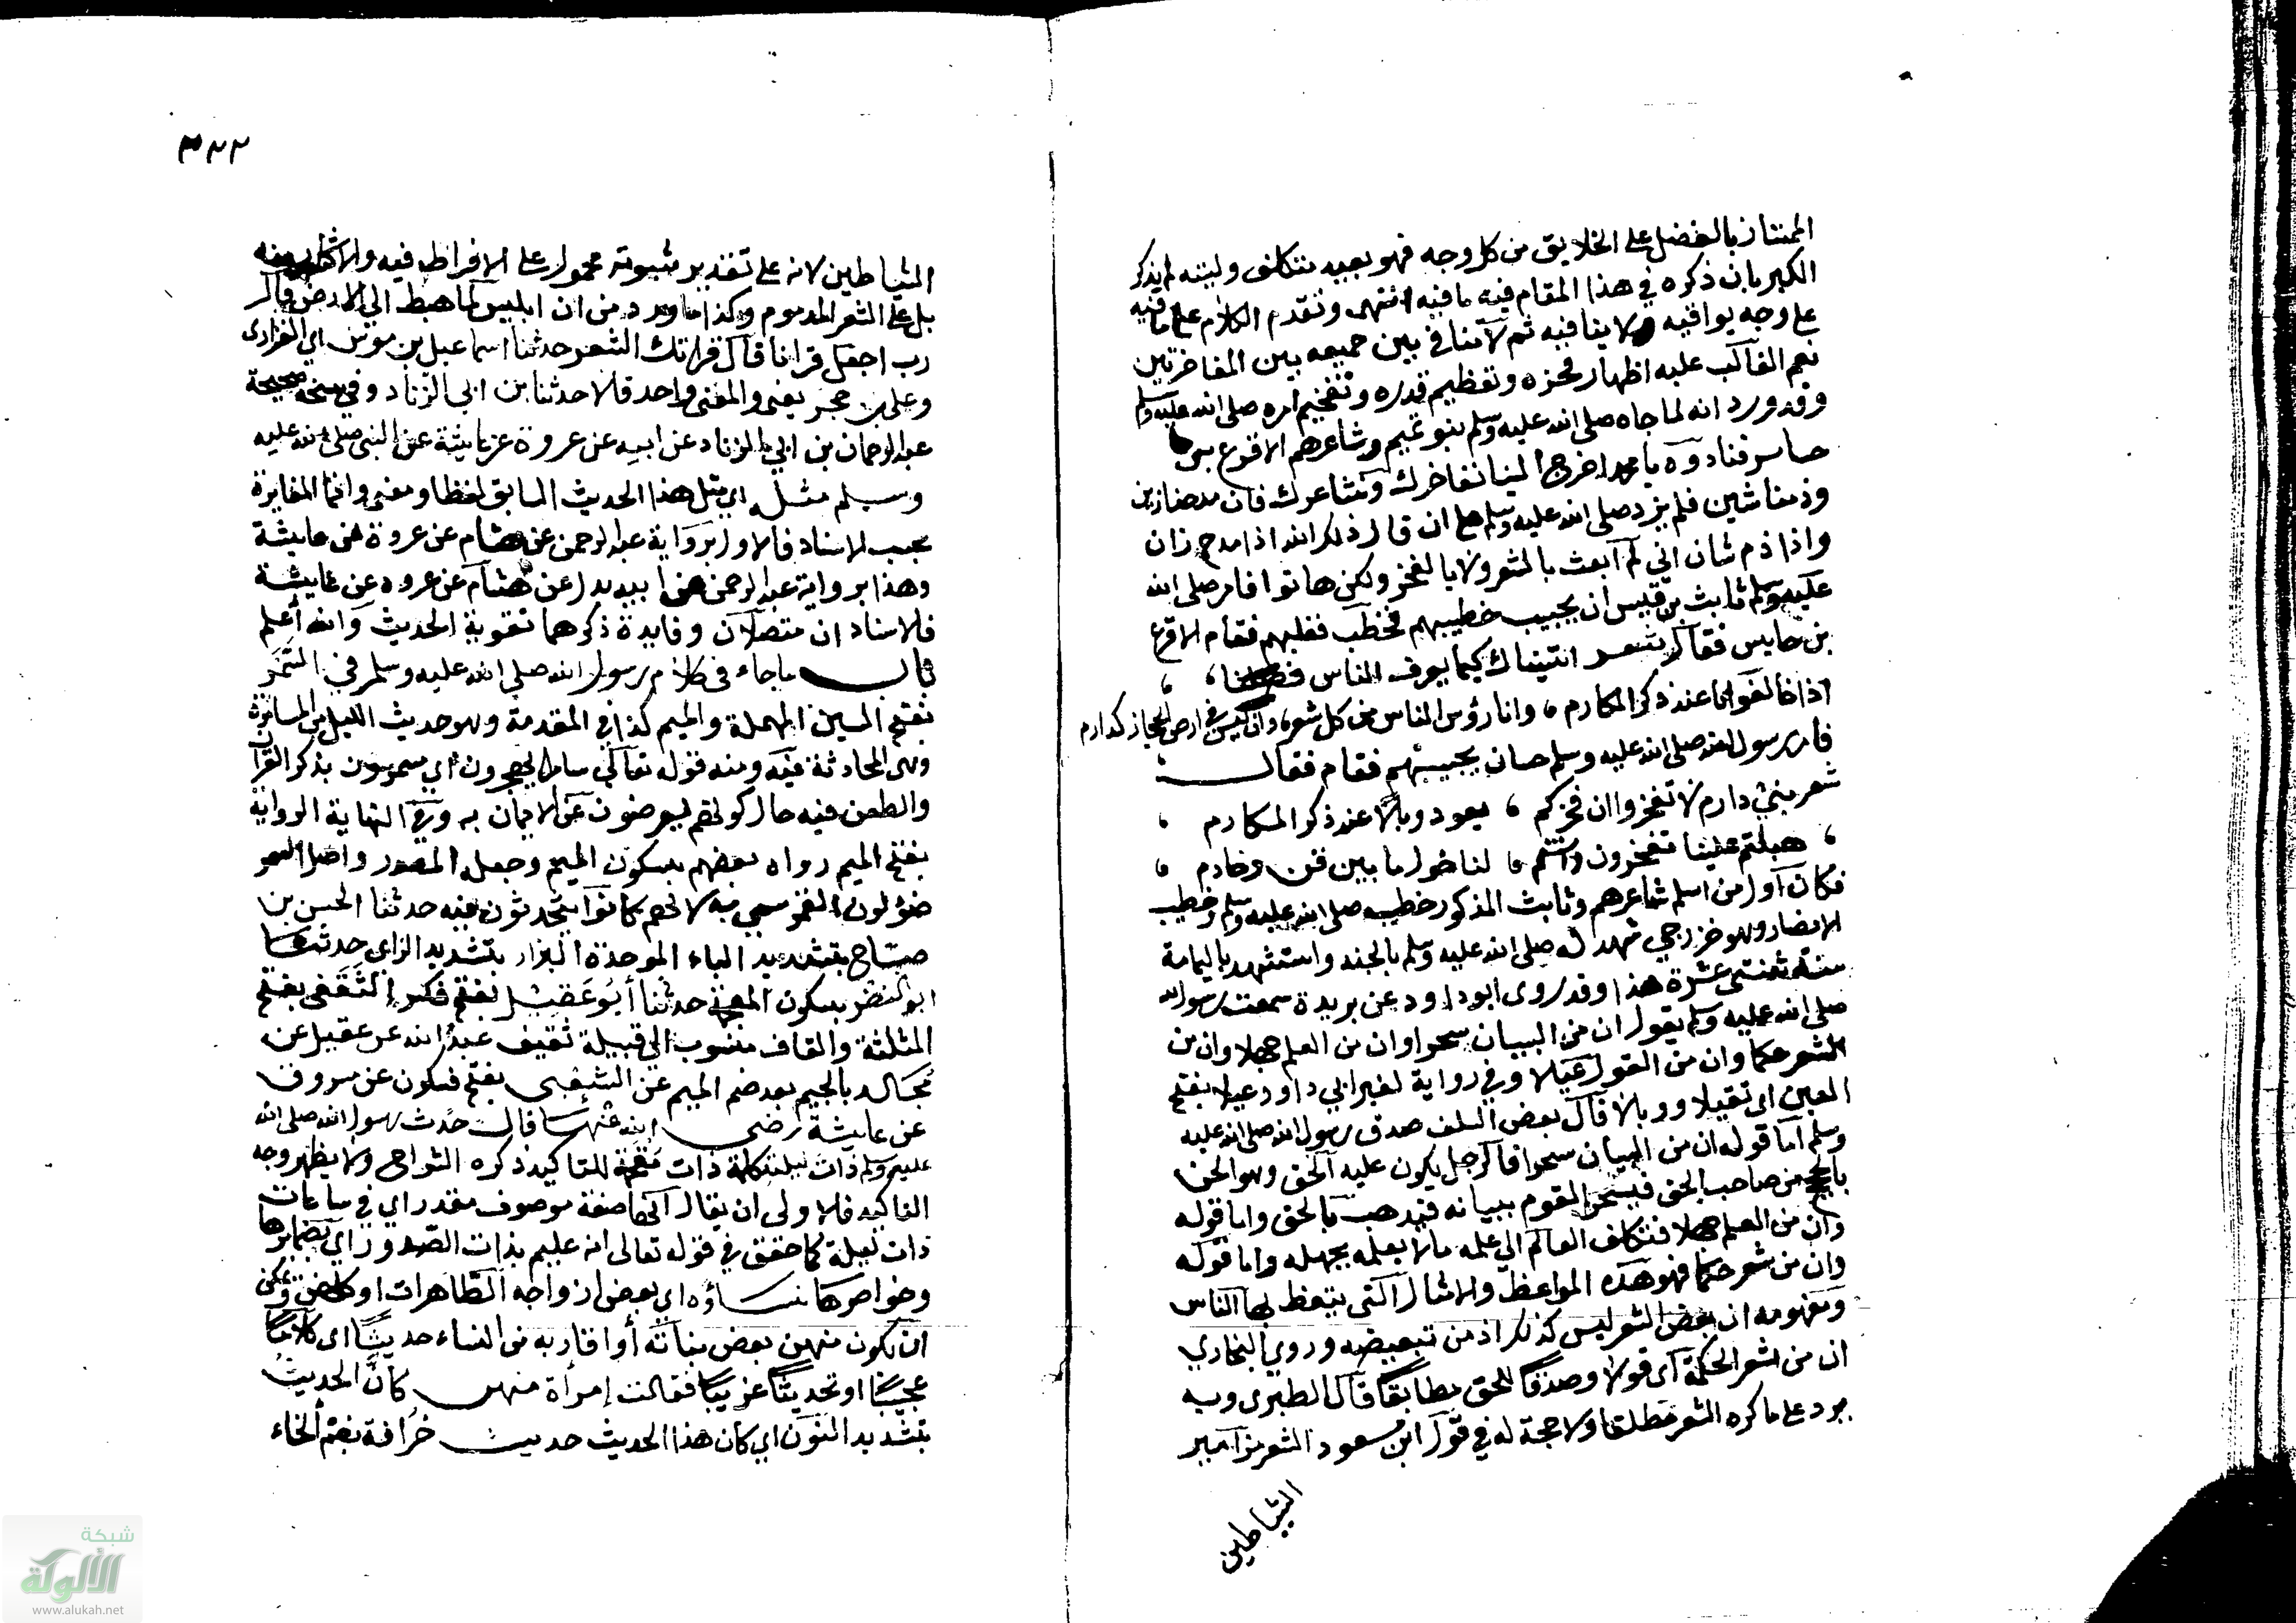 الممتاز بالفضل على الخلايق من كل وجه فهو بعيد متكلف وليته لم يذكر
الكبر بان ذكره في هذا المقام فيه ما فيه انتهى وتقدم الكلام على ما فيه
على وجه يوافيه ولا ينافيه ثم لا تنافي بين جميعه بين المفاخرتين
نعم الغالب عليه اظهار فخره وتعظيم قدره وتفخيم امره صلى الله عليه وسلم
وقد ورد انه لما جاه صلى الله عليه وسلم بنو تميم وشاعرهم الاقرع بن
حابس فنادوه يا محمد اخرج الينا نفاخرك ونشاعرك فان مدحنا زين
وذمنا شين فلم يزد صلى الله عليه وسلم على ان قال ذلك الله اذا مدح زان
واذا ذم شان اني لم ابعث بالشعر ولا بالفخر ولكن هاتوا فامر صلى الله
عليه وسلم ثابت بن قيس ان يجيب خطيبهم فخطب فغلبهم فقام الاقرع
بن حابس فقال شعر اتيناك كيما يعرف الناس فضلنا
اذا خالفوانا عند ذكر المكارم وانا رؤس الناس من كل شعر وان ليس في ارض الحجاز كدارم
فامر رسول الله صلى الله عليه وسلم حسان يجيبهم فقام فقال
شعر بني دارم لا تفخروا ان فخركم يعود وبالا عند ذكر المكارم
هبلتم علينا تفخرون وانتم لنا خول ما بين قن وخادم
فكان اول من اسلم شاعرهم وثابت المذكور خطيبه صلى الله عليه وسلم وخطيب
الانصار وهو خزرجي شهد له صلى الله عليه وسلم بالجنة واستشهد باليمامة
سنة ثنتى عشرة هذا وقد روى ابو داود عن بريدة سمعت رسول الله
صلى الله عليه وسلم يقول ان من البيان سحرا وان من العلم جهلا وان من
الشعر حكما وان من القول عيلا وفي رواية لغير ابي داود عيلا بفتح
العين اى ثقيلا ووبالا قال بعض السلف صدق رسول الله صلى الله عليه
وسلم اما قوله ان من البيان سحرا فالرجل يكون عليه الحق وهو الحن
بالحجج من صاحب الحق فيسحر القوم ببيانه فيذهب بالحق واما قوله
وان من العلم جهلا فتكلف العالم الى علمه مالا يعلمه بجهله واما قوله
وان من شعر حكما فهو هذه المواعظ والامثال التي يتعظ بها الناس
ومفهومه ان بعض الشعر ليس كذلك اذ من تبعيضه وروى البخاري
ان من الشعر الحكمة اى قولا وصدقا للحق مطابقا قال الطبرى وبه
يرد على ما كره الشعر مطلقا ولا حجة له في قول ابن مسعود الشعر مزامير
الشياطين
٣٢٢
الشياطين لانه على تقدير ثبوته محمول على الافراط فيه والاكثار منه
بل على الشعر المذموم وكذا ما ورد من ان ابليس لما هبط الى الارض قال
رب اجعل قرانا قال قرانك الشعر حدثنا اسماعيل بن موسى الفزارى
وعلى بن حجر يعنى والمعنى واحد قالا حدثنا بن ابي الزناد وفي نسخة صحيحة
عبد الرحمان بن ابي الزناد عن ابيه عن عروة عن عايشة عن النبى صلى الله عليه
وسلم مثله اي مثل هذا الحديث السابق لفظا ومعنى وانما المغايرة
بحسب الاسناد فالاول برواية عبد الرحمن عن هشام عن عروة عن عايشة
وهذا برواية عبد الرحمن عن ابيه بدل عن هشام عن عروة عن عايشة
فالاسنادان متصلان وفايدة ذكرهما تقوية الحديث والله أعلم
باب ما جاء فى كلام رسول الله صلى الله عليه وسلم في السَّمَر
بفتح السين المهملة والميم كذا في المقدمة وهو حديث الليل من المسامرة
وهى المحادثة فيه ومنه قوله تعالى سامرا تهجرون اي يسمرون بذكر القرآن
والطعن فيه حال كونهم يعرضون عن الايمان به وفي النهاية الرواية
بفتح الميم رواه بعضهم بسكون الميم وجعله المصدر واصل السمر
ضوء لون القمر سمي به لانهم كانوا يتحدثون فيه حدثنا الحسن بن
صبّاح بتشديد الباء الموحدة البزار بتشديد الزاى حدثنا
ابو النضر بسكون المعجمة حدثنا أبو عَقِيْل بفتح فكسر الثَّقَفى بفتح
المثلثة والقاف منسوب الى قبيلة ثقيف عبد الله عن عقيل عن
مُجَالد بالجيم بعد ضم الميم عن الشَّعْبى بفتح فسكون عن مسروق
عن عايشة رضى الله عنها قالت حدث رسول الله صلى الله
عليه وسلم ذات ليلة كلمة ذات مقحمة للتاكيد ذكره الشراح ولا يظهر وجه
التاكيد فالاولى ان يقال انها صفة موصوف مقدر اي في ساعات
ذات ليلة كما حقق في قوله تعالى انه عليم بذات الصدور اي بضمايرها
وخواصها نساؤه اي بعض ازواجه الطاهرات او كلهن ويمكن
ان تكون منهن بعض بناته أو اقاربه من النساء حديثًا اى كلامًا
عجيبًا او تحديثًا غريبًا فقالت إمرأة منهن كأنَّ الحديثَ
بتشديد النون اي كان هذا الحديث حديث خُرافة بضم الخاء
شبكة
الألوكة
www.alukah.net